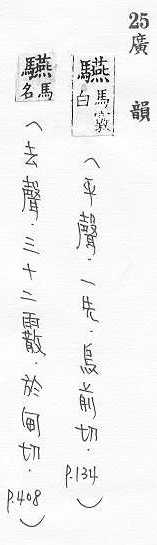 25廣韻
驠 馬竅白（平聲．一先．烏前切．P.134）
驠 馬名（去聲．三十二霰．於甸切．P.408）